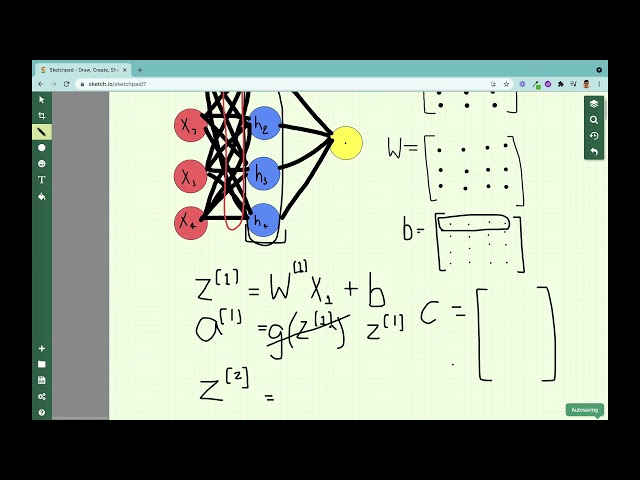 Sketchpad - Draw, Create, Sha
sketch.io/sketchpad/?
X₂ h₂
X₃ h₃
X₄ h₄
W=
b=
z[1] = W[1] X₁ + b
a[1] = g(z[1]) z[1]
C =
z[2] =
T
Autosaving